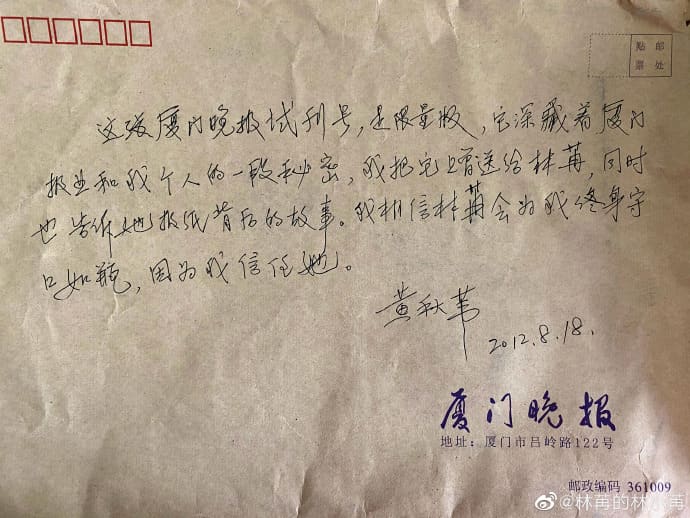 贴 邮
票 处
这张厦门晚报试刊号，是限量版，它深藏着厦门
报业和我个人的一段秘密，我把它赠送给林苒，同时
也告诉她报纸背后的故事。我相信林苒会为我终身守
口如瓶，因为我信任她。
黄秋苇
2012.8.18.
厦门晚报
地址：厦门市吕岭路122号
邮政编码 361009
@林苒的林小苒